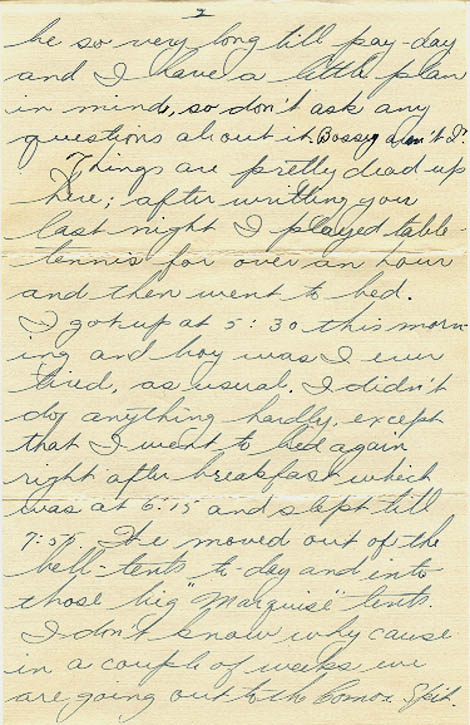 2
be so very long till pay-day
and I have a little plan
in mind, so don't ask any
questions about it. Bossy ain't I?
Things are pretty dead up
here; after writting you
last night I played table-
tennis for over an hour
and then went to bed.
I got up at 5:30 this morn-
ing and boy was I ever
tired, as usual. I didn't
do anything hardly, except
that I went to bed again
right after breakfast which
was at 6:15 and slept till
7:50. We moved out of the
bell-tents to-day and into
those big "Marquise" tents.
I don't know why cause
in a couple of weeks we
are going out to the Comox Spit.